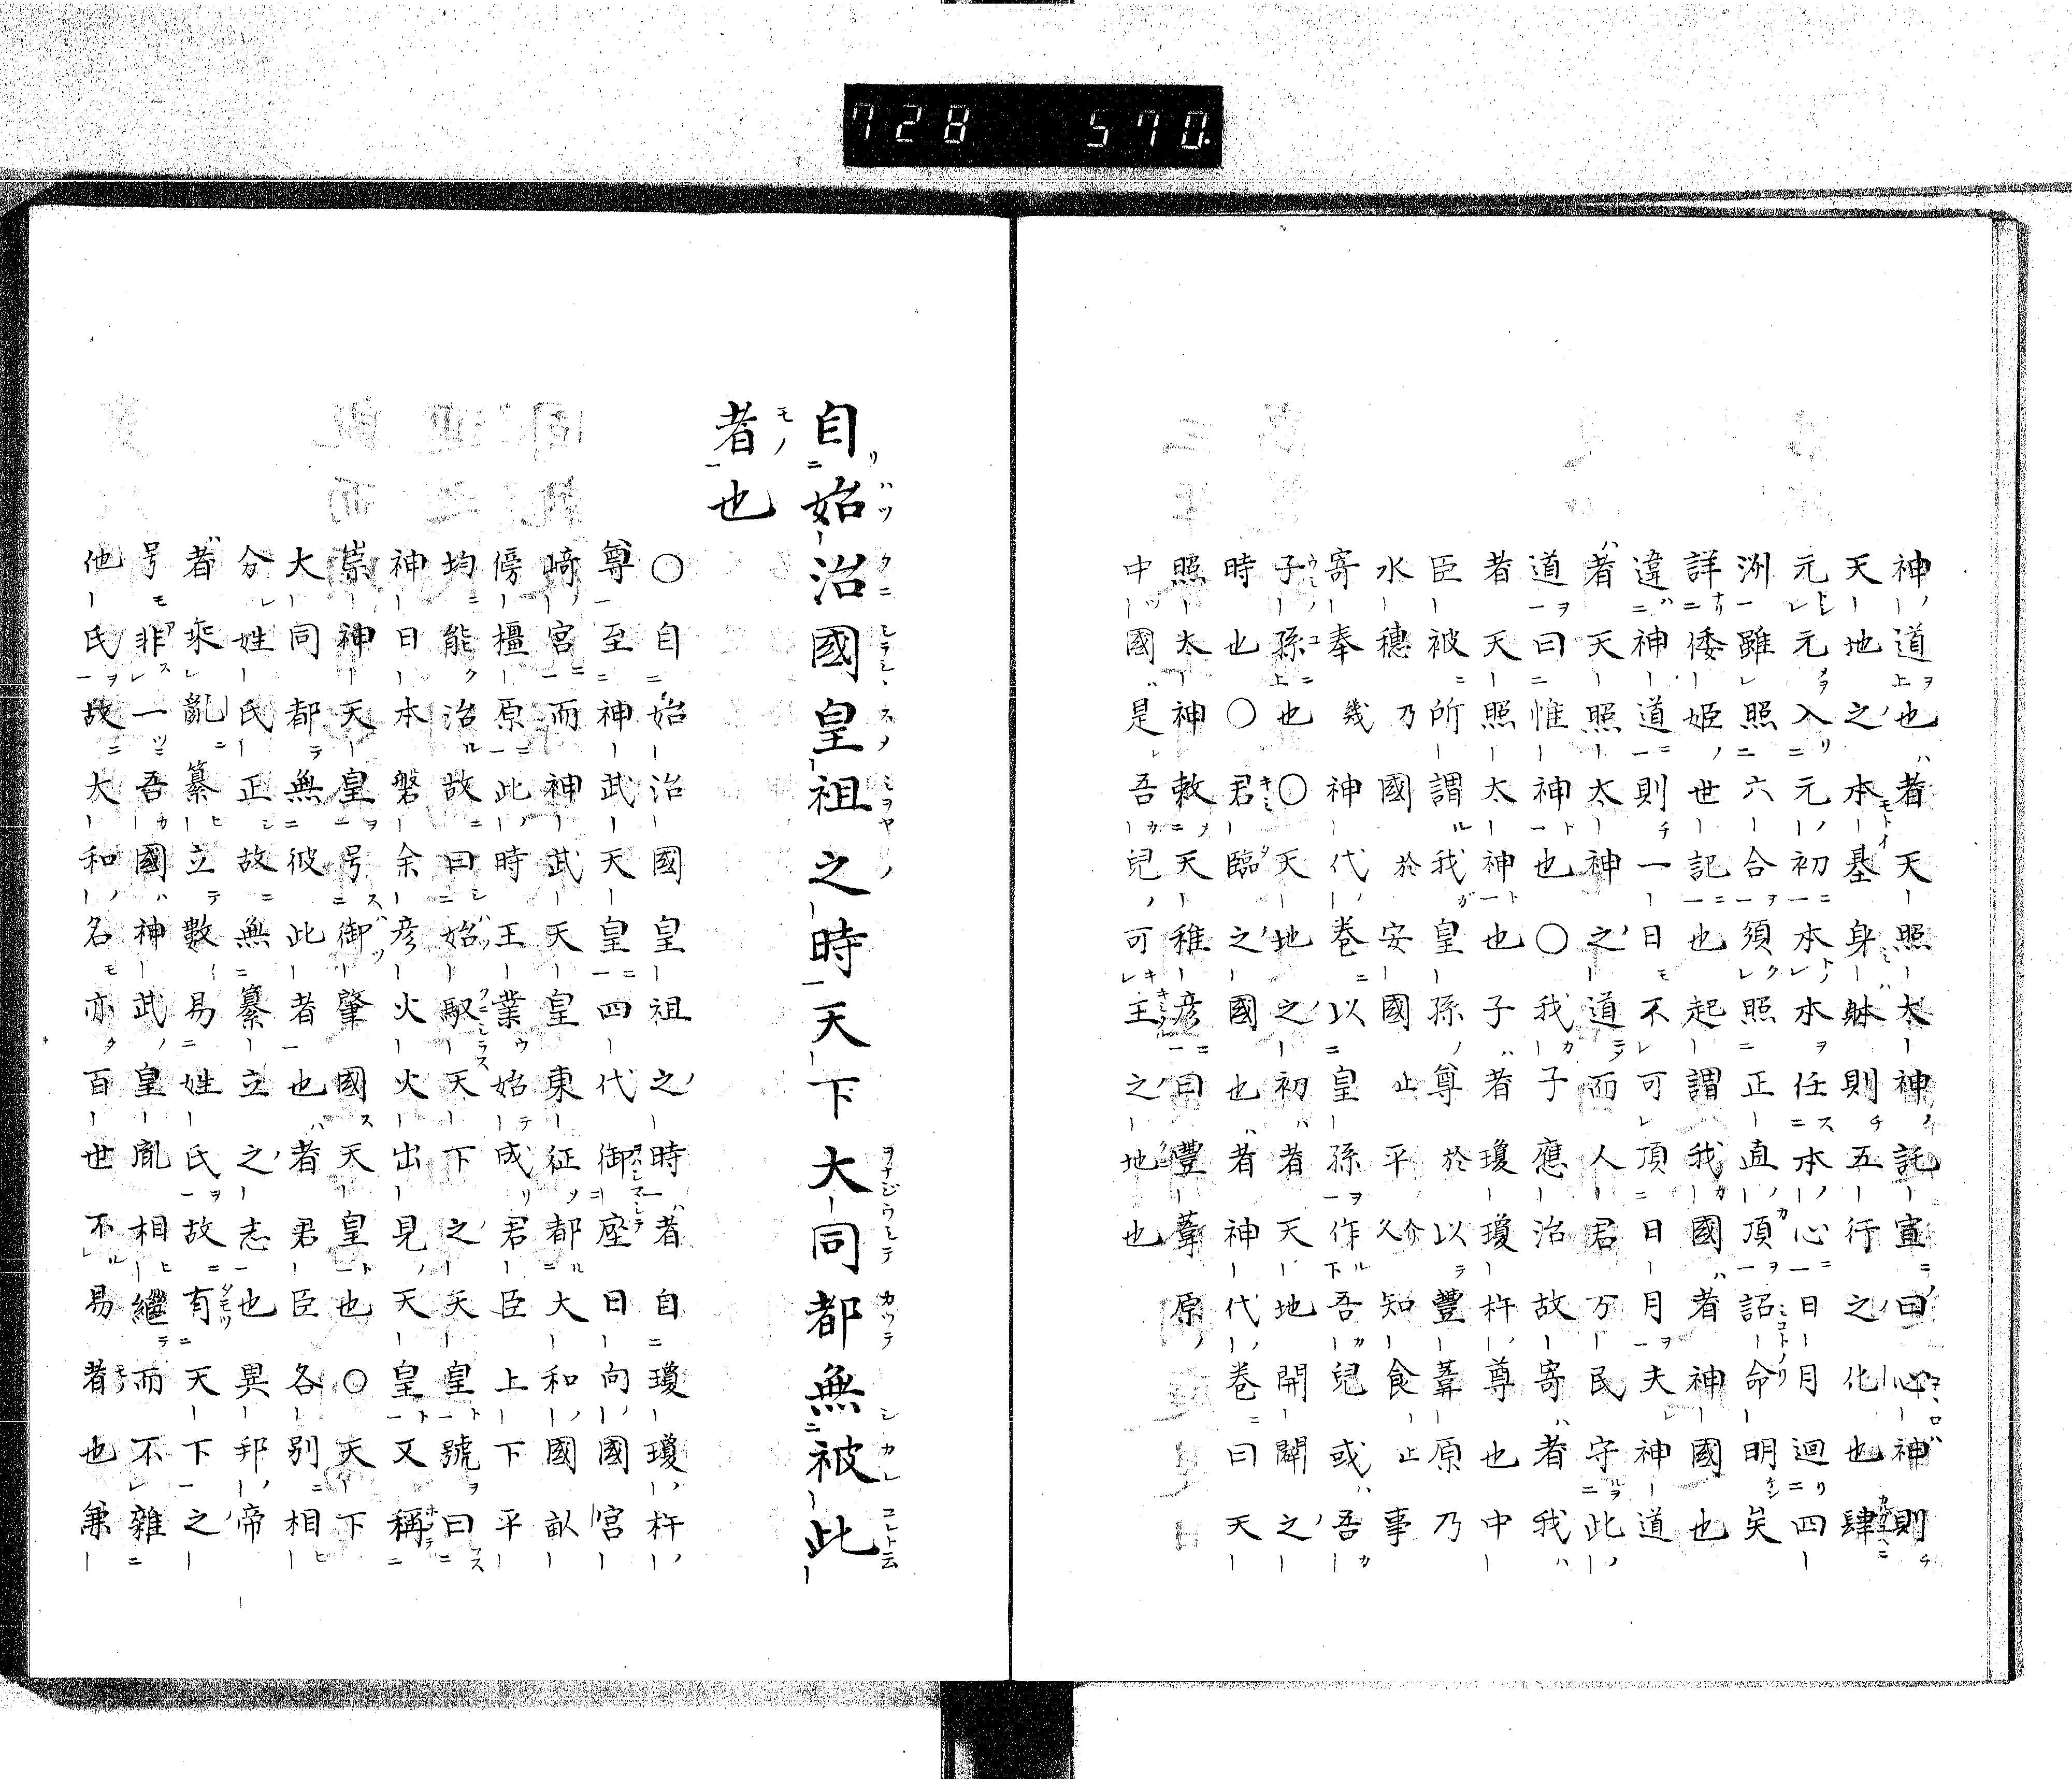 728 570.
神道也者天照太神託宣曰心神則
天地之本基身躰則五行之化也肆
元元入元初本本任本心日月迴四
洲雖照六合須照正直頂詔命明矣
詳倭姬世記也起謂我國者神國也
違神道則一日不可頂日月夫神道
者天照太神之道而人君万民守此
道曰惟神也〇我子應治故寄者我
者天照太神也子者瓊瓊杵尊也中
臣被所謂我皇孫尊於以豐葦原乃
水穗乃國於安國止平介久知食止事
寄奉幾神代卷以皇孫作吾兒或吾
子孫也〇天地之初者天地開闢之
時也〇君臨之國也者神代卷曰天
照太神敕天稚彦曰豐葦原
中國是吾兒可王之地也
自始治國皇祖之時天下大同都無彼此
者也
〇自始治國皇祖之時者自瓊瓊杵
尊至神武天皇四代御座日向國宮
﨑宮而神武天皇東征都大和國畝
傍橿原此時王業始成君臣上下平
均能治故曰始馭天下之天皇號曰
神日本磐余彦火火出見天皇又稱
崇神天皇号御肇國天皇也〇天下
大同都無彼此者也者君臣各別相
分姓氏正故無纂立之志也異邦帝
者乘亂纂立數易姓氏故有天下之
号非一吾國神武皇胤相繼而不雜
他氏故大和名亦百世不易者也兼